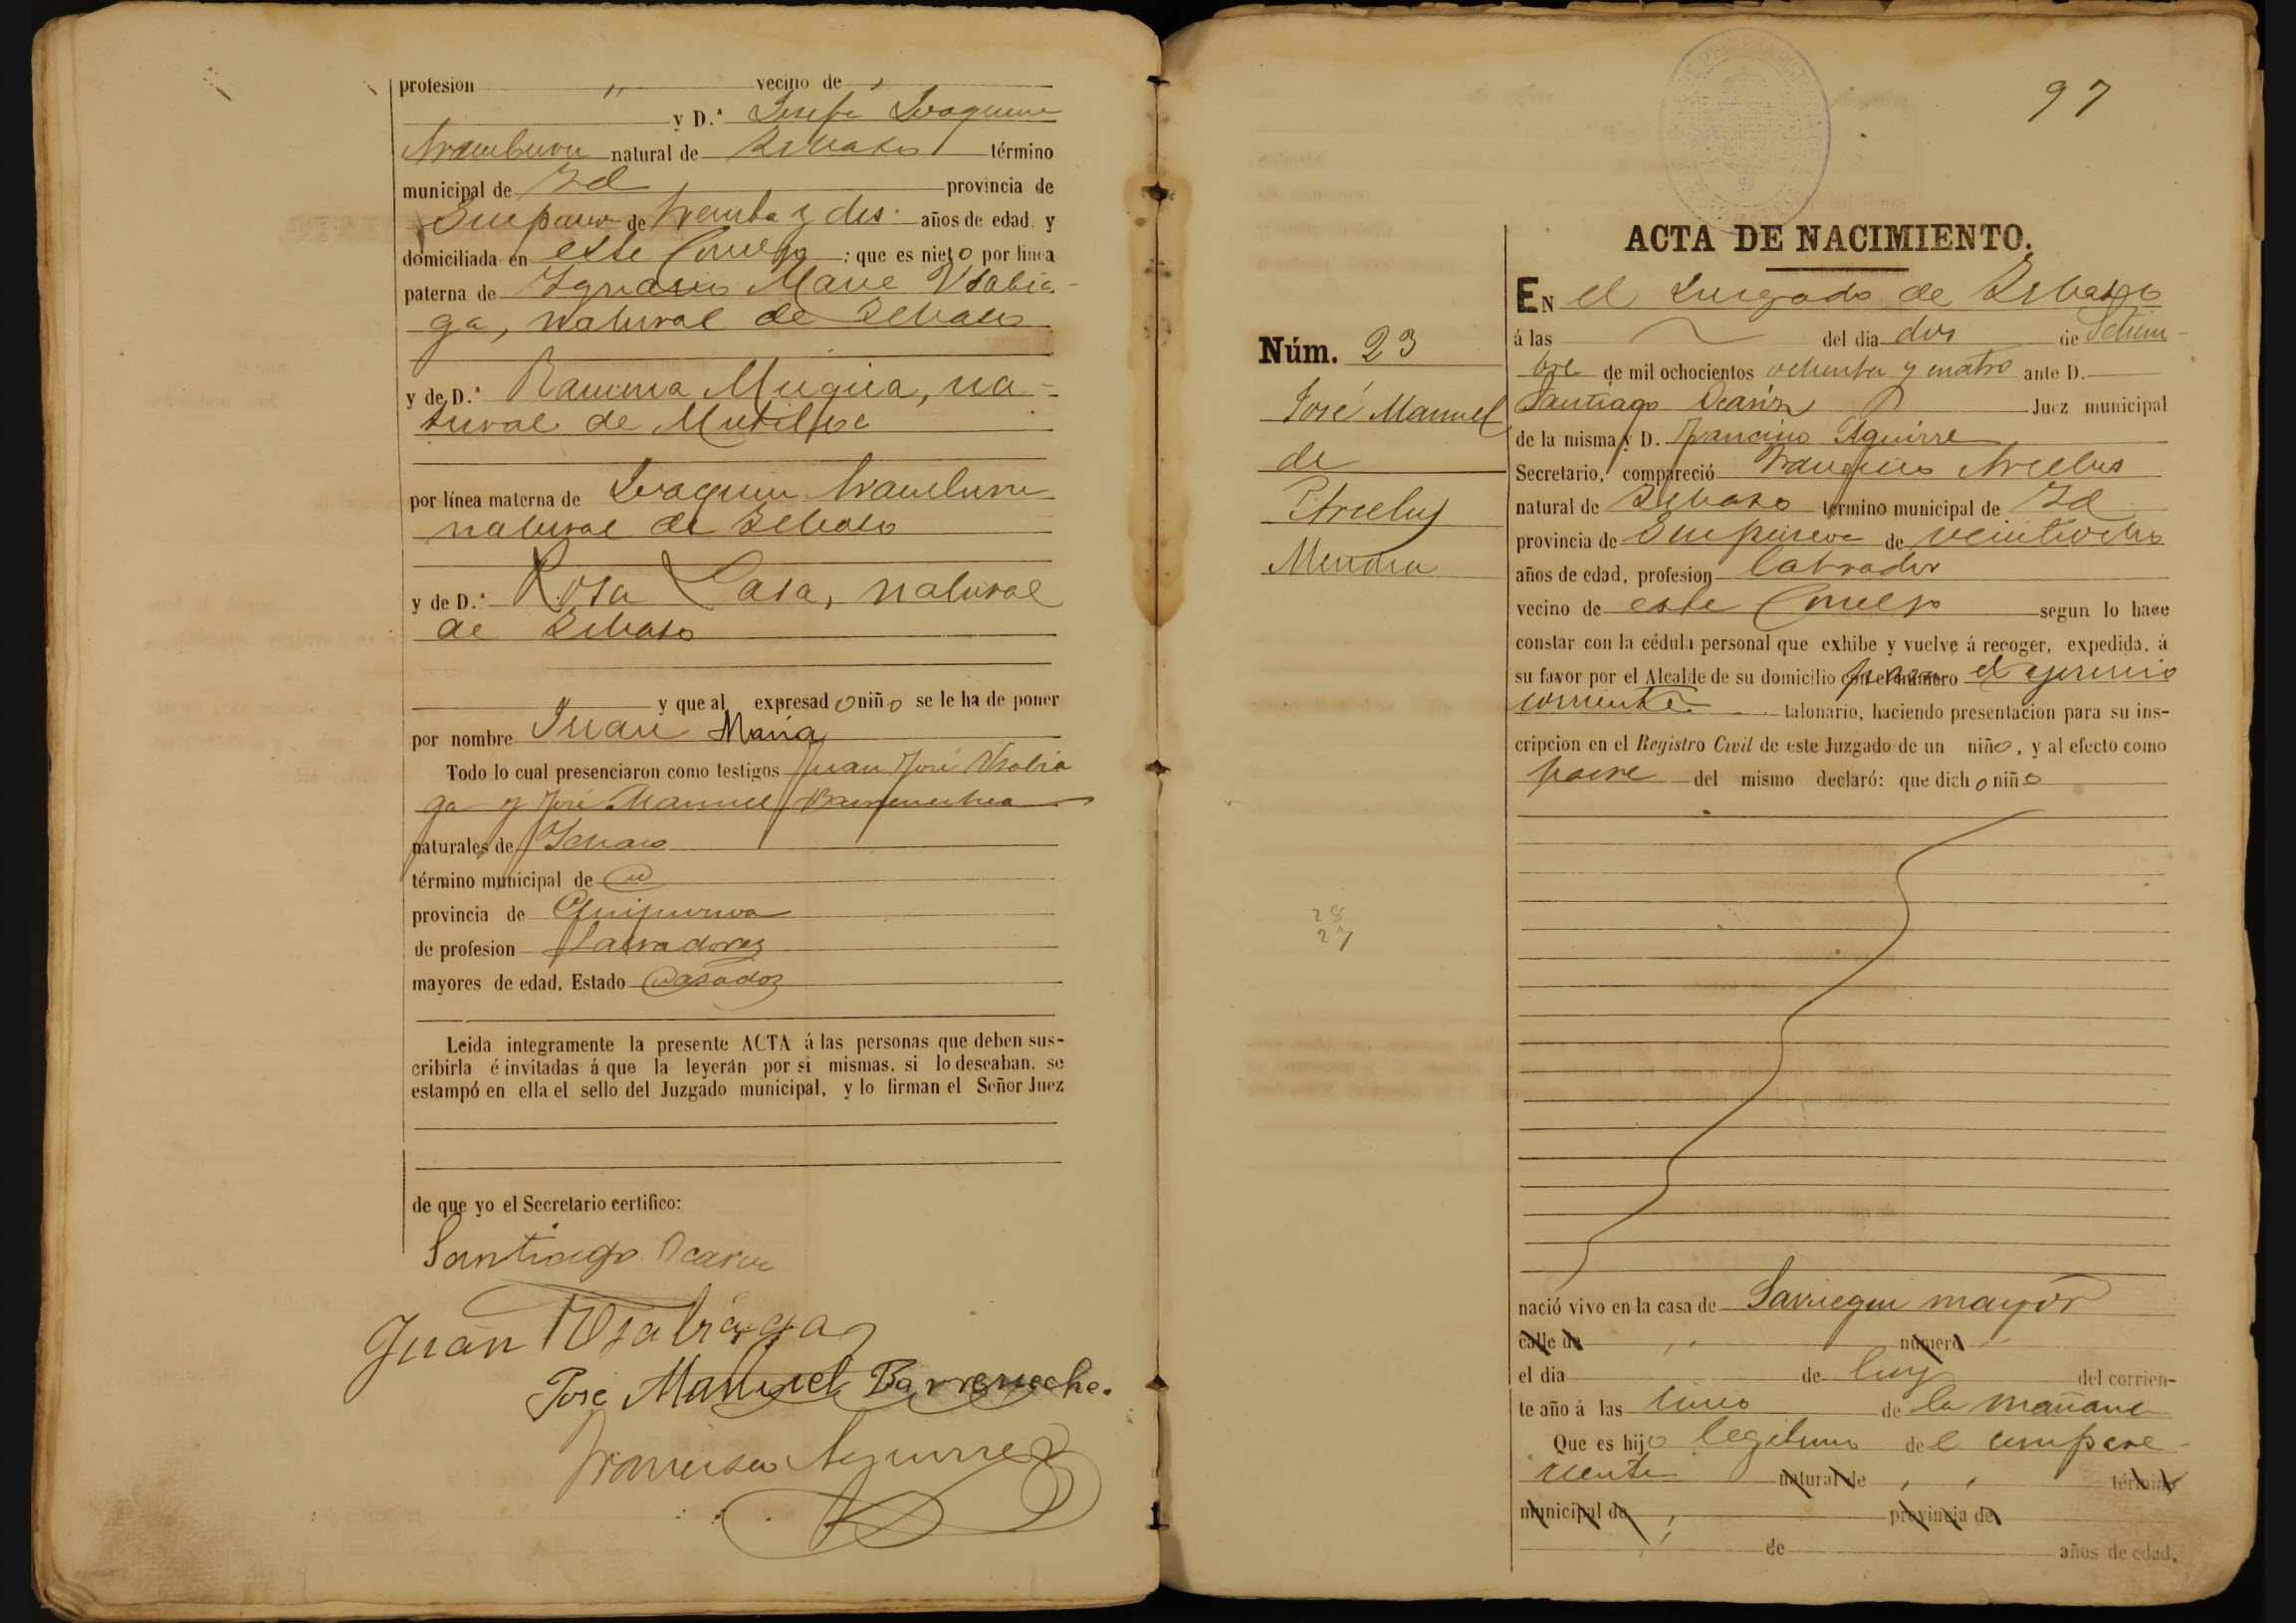 profesion " vecino de "
y D.ª Josefa Joaquina
Aramburu natural de Idiazabal término
municipal de Id provincia de
Guipuzcoa de treinta y dos años de edad y
domiciliada en este Consejo ; que es nieto por línea
paterna de Ignacio María Usabia-
ga, natural de
y de D.ª Ramona Mugica, na-
tural de Mutiloa
por línea materna de Joaquin Aramburu
natural de
y de D.ª Rosa Lasa, natural
de
y que al expresado niño se le ha de poner
por nombre Juan María
Todo lo cual presenciaron como testigos Juan José Usabia
ga y José Manuel Barrenechea
naturales de
término municipal de id
provincia de Guipuzcoa
de profesion Labradores
mayores de edad, Estado Casados
Leida integramente la presente ACTA á las personas que deben sus-
cribirla é invitadas á que la leyerán por sí mismas, si lo deseaban, se
estampó en ella el sello del Juzgado municipal, y lo firman el Señor Juez
de que yo el Secretario certifico:
Santiago
Juan Usabiaga
Jose Manuel Barreneche.
Francisco Aguirre
97
ACTA DE NACIMIENTO.
EN el Juzgado de
á las del dia dos de Setiem-
bre de mil ochocientos ochenta y cuatro ante D.
Santiago Juez municipal
de la misma y D. Francisco Aguirre
Secretario, compareció Francisco Arcelus
natural de término municipal de Id
provincia de Guipuzcoa de veintiocho
años de edad, profesion labrador
vecino de este Consejo segun lo hace
constar con la cédula personal que exhibe y vuelve á recoger, expedida, á
su favor por el Alcalde de su domicilio con el número para el ejercicio
corriente talonario, haciendo presentacion para su ins-
cripcion en el Registro Civil de este Juzgado de un niño, y al efecto como
padre del mismo declaró: que dicho niño
Núm. 23
José Manuel
de
Arcelus
Mendia
28
27
nació vivo en la casa de Sarriegui mayor
calle de " número "
el dia de hoy del corrien-
te año á las cinco de la mañana
Que es hijo legitimo del compare-
ciente natural de " " término
municipal de " provincia de
" de años de edad,